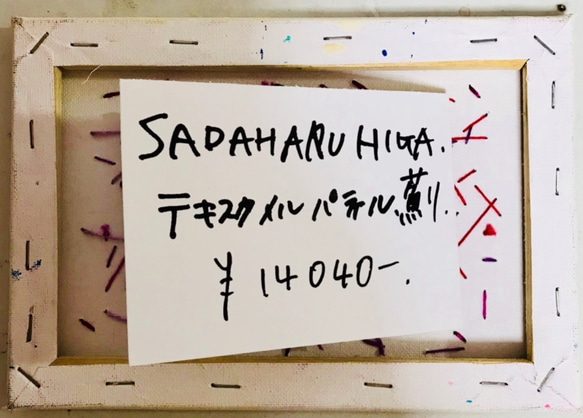 SADAHARU HIGA.
テキスタメルパネル、蘇り..
¥14040-.